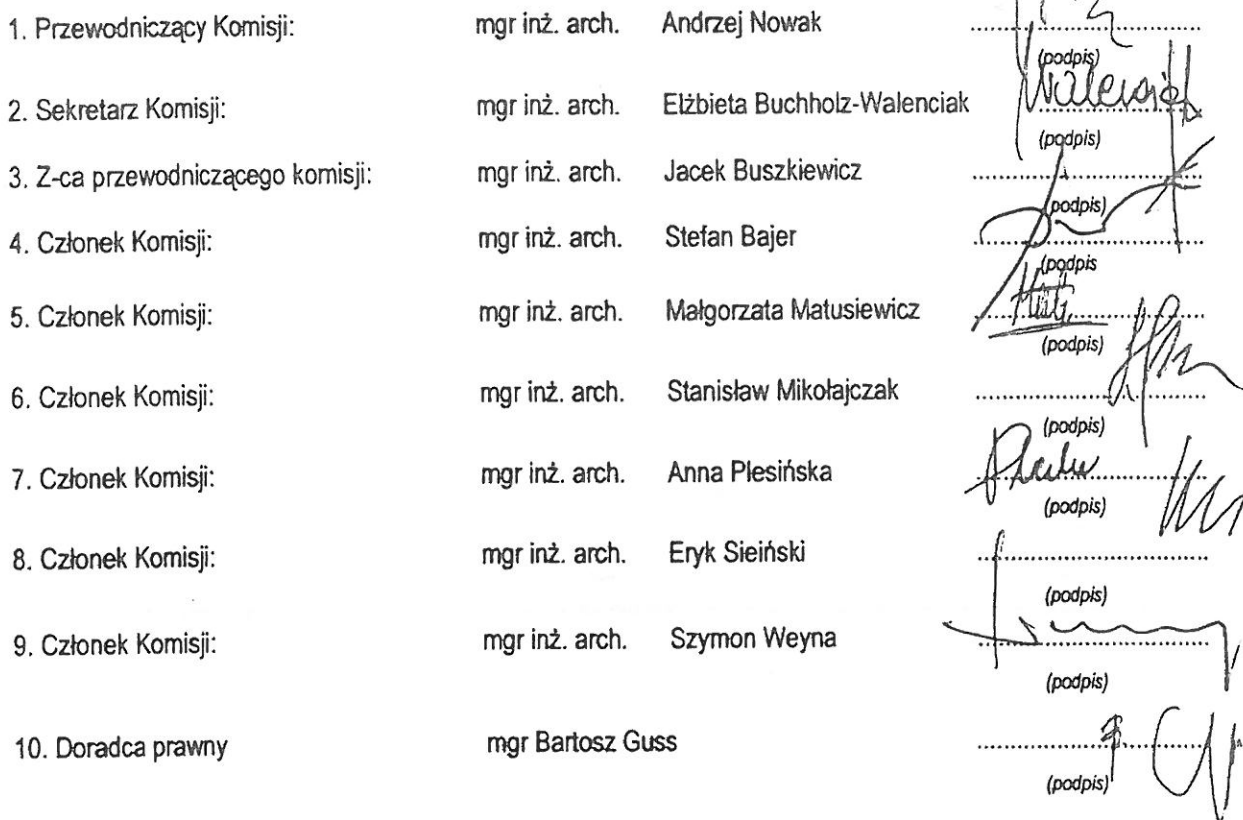 1. Przewodniczący Komisji: mgr inż. arch. Andrzej Nowak ....................
(podpis)
2. Sekretarz Komisji: mgr inż. arch. Elżbieta Buchholz-Walenciak ....................
(podpis)
3. Z-ca przewodniczącego komisji: mgr inż. arch. Jacek Buszkiewicz ....................
(podpis)
4. Członek Komisji: mgr inż. arch. Stefan Bajer ....................
(podpis
5. Członek Komisji: mgr inż. arch. Małgorzata Matusiewicz ....................
(podpis)
6. Członek Komisji: mgr inż. arch. Stanisław Mikołajczak ....................
(podpis)
7. Członek Komisji: mgr inż. arch. Anna Plesińska ....................
(podpis)
8. Członek Komisji: mgr inż. arch. Eryk Sieiński ....................
(podpis)
9. Członek Komisji: mgr inż. arch. Szymon Weyna ....................
(podpis)
10. Doradca prawny mgr Bartosz Guss ....................
(podpis)